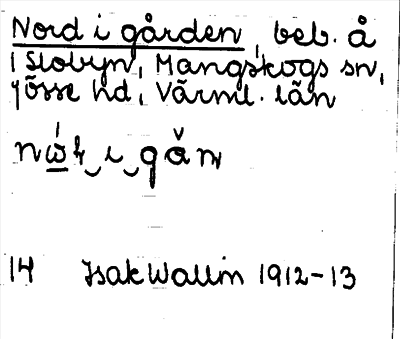 Nord i gården, beb. å
i Slobyn, Mangskogs sn,
Jösse hd, Värml. län
i gån
14 Isak Wallin 1912-13